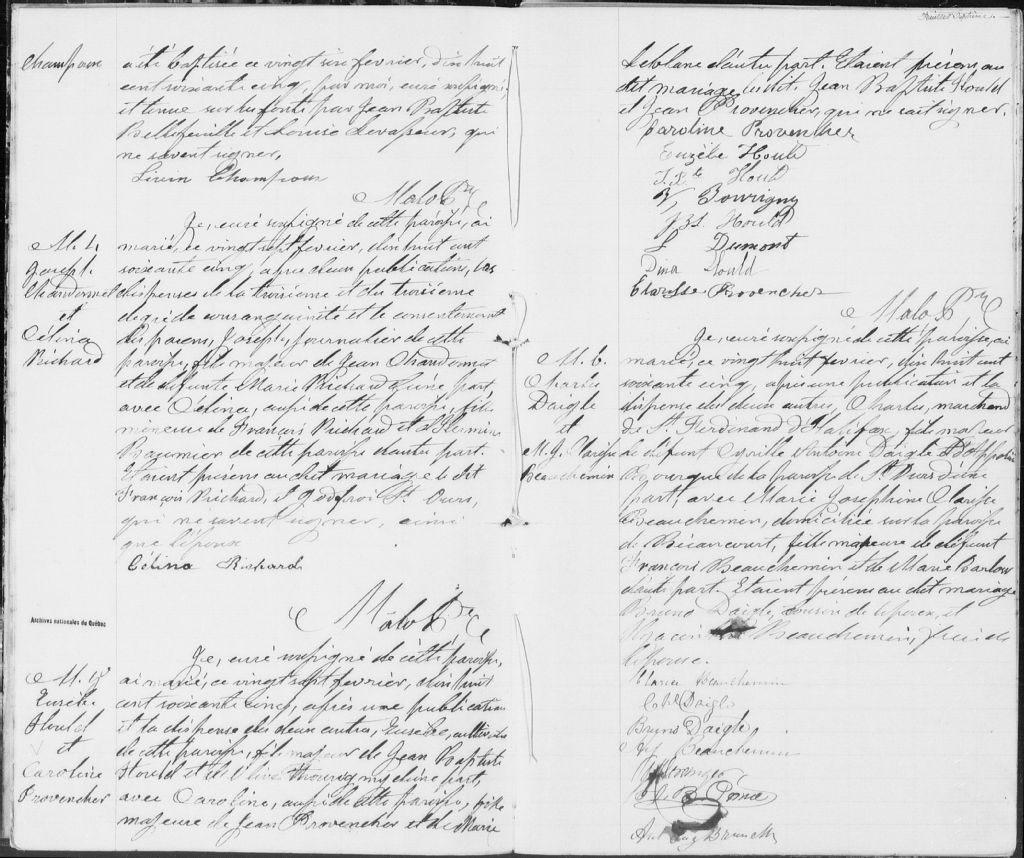 Champoux
a été baptisée ce vingt six fevrier, dix huit
cent soixante cinq, par moi, curé soussigné
et tenue sur les fonts par Jean Baptiste
Bellefeuille et Louise Levasseur, qui
ne savent signer.
Livin Champoux
Malo Ptre
Je, curé soussigné de cette paroisse, ai
marié, ce vingt sept fevrier, dix huit cent
soixante cinq, après deux publications, les
dispenses de la troisieme et du troisieme
degré de consanguinité et le consentement
des parens, Joseph, journalier de cette
paroisse, fils majeur de Jean Chandonnet
et de défunte Marie Richard d'une part,
avec Célina, aussi de cette paroisse, fille
mineure de François Richard et d'
de cette paroisse d'autre part.
Etaient présens au dit mariage le dit
François Richard, et Godefroi St. Ours,
qui ne savent signer, ainsi
que l'épouse
Célina Richard
M. 4
Joseph
Chandonnet
et
Célina
Richard
Malo Ptre
Archives nationales du Québec
Je, curé soussigné de cette paroisse,
ai marié, ce vingt sept fevrier, dix huit
cent soixante cinq, après une publication
et la dispense des deux autres, Eusèbe, cultivateur
de cette paroisse, fils majeur de Jean Baptiste
Hould et d'Olive d'une part,
avec Caroline, aussi de cette paroisse, fille
majeure de Jean Provencher et de Marie
M. 5
Eusèbe
Hould
et
Caroline
Provencher
Leblanc d'autre part. Etaient présens au
dit mariage les dits Jean Baptiste Hould
et Jean Provencher, qui ne sait signer.
Caroline Provencher
Euzèbe Hould
Hould
Bourigny
J. Bt. Hould
Dumont
Dina Hould
Clarisse Provencher
Malo Ptre
Je, curé soussigné de cette paroisse, ai
marié, ce vingt huit fevrier, dix huit cent
soixante cinq, après une publication et la
dispense des deux autres, Charles, marchand
de St. Ferdinand d'Halifax, fils majeur
de défunt Cyrille Antoine Daigle et d'Appoline
Bourque de la paroisse de St. d'une
part, avec Marie Josephine Clarisse
Beauchemin, domiciliée sur la paroisse
de Bécancourt, fille majeure de défunt
François Beauchemin et de Marie
d'autre part. Etaient présens au dit mariage
Bruno Daigle, cousin de l'époux, et
Beauchemin, frère de
l'épouse.
M. 6.
Charles
Daigle
et
M. J.
Beauchemin
Beauchemin
Daigle
Bruno Daigle
Beauchemin
Prince